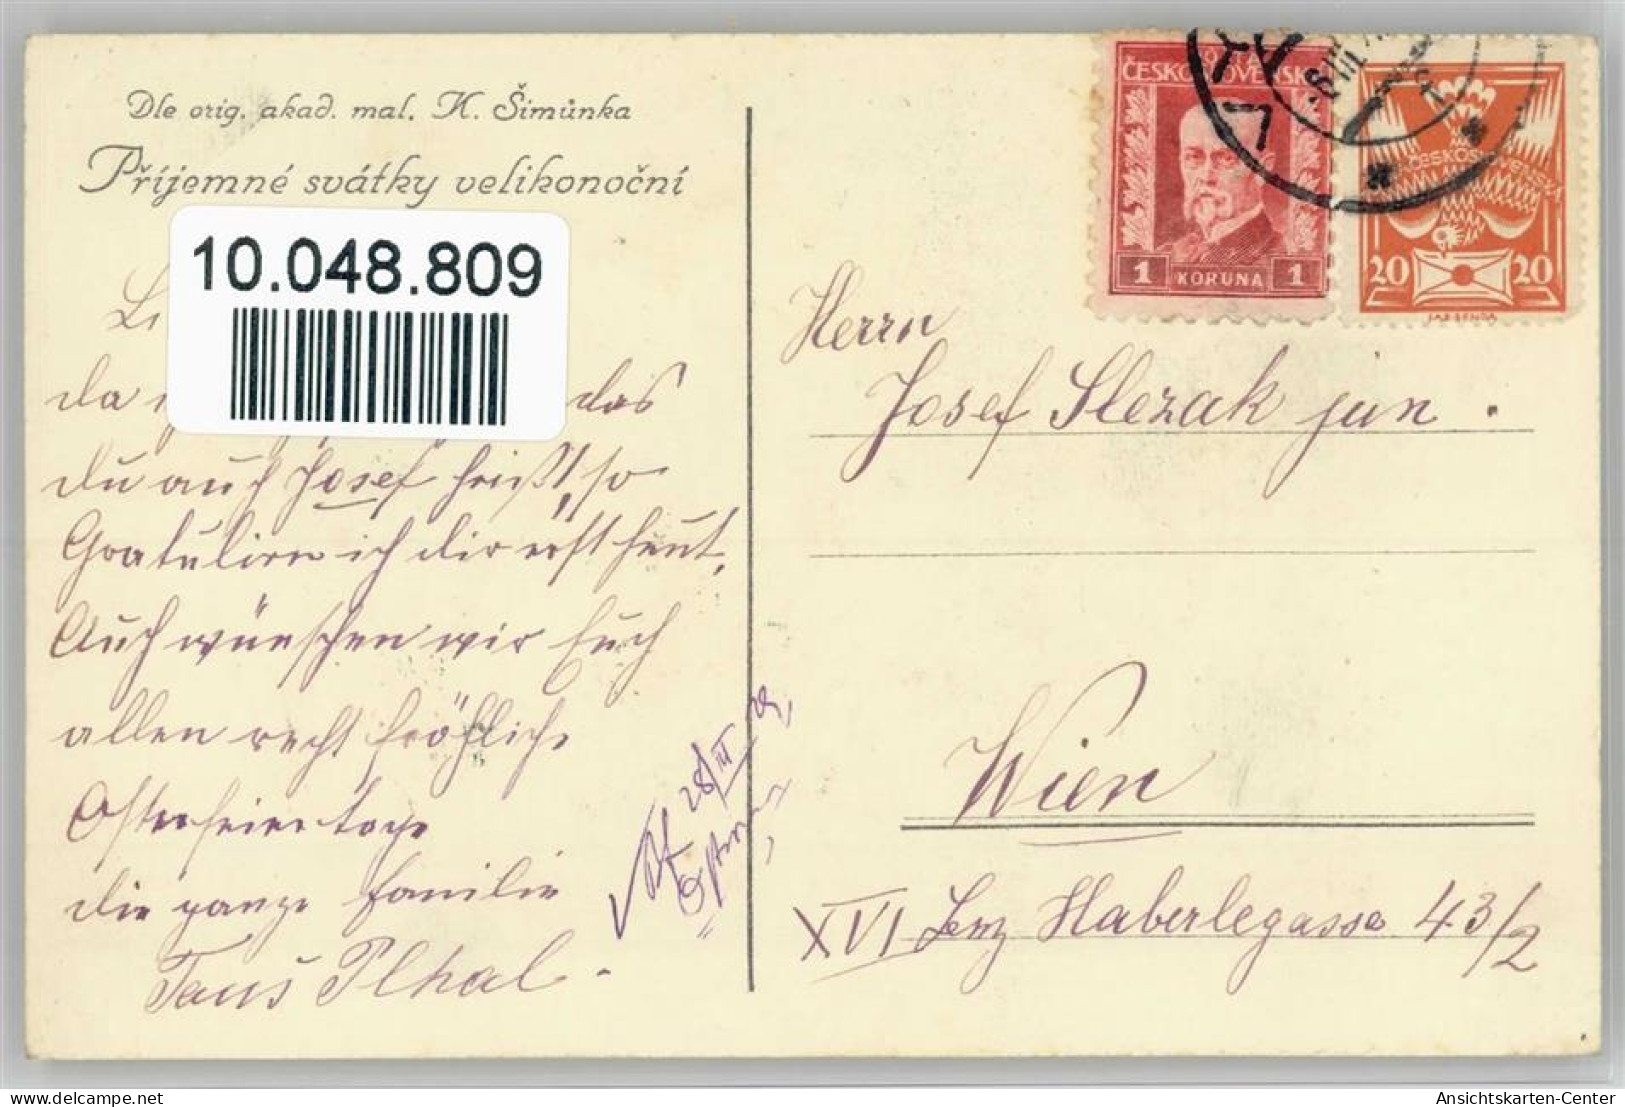 Dle orig. akad. mal. K. Šimůnka
Příjemné svátky velikonoční
10.048.809
da das
du auch Josef heißt, so
Gratuliere ich dir erst heut.
Auch wünschen wir Euch
allen recht fröhliche
Osterfeiertage
die ganze Familie
Taus Plhal
28/III 29
ČESKOSLOVENSKO
1 KORUNA 1
ČESKOSLOVENSKÁ
20 20
Herrn
Josef Slezak jun.
Wien
XVI Lenz Haberlegasse 43/2
delcampe.net
Ansichtskarten-Center